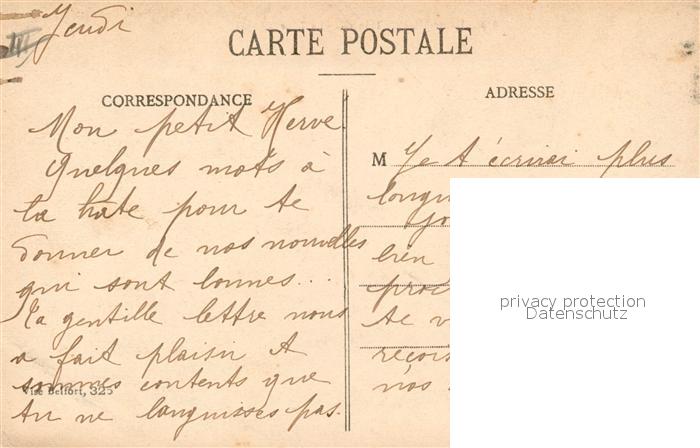 Jeudi
CARTE POSTALE
CORRESPONDANCE
Mon petit Hervé
Quelques mots à
la hâte pour te
donner de nos nouvelles
qui sont bonnes...
Ta gentille lettre nous
a fait plaisir et
sommes contents que
tu ne languisses pas.
Visé Belfort, 325
ADRESSE
M Je t'écrirai plus
bien
te v
reçois
nos
privacy protection
Datenschutz